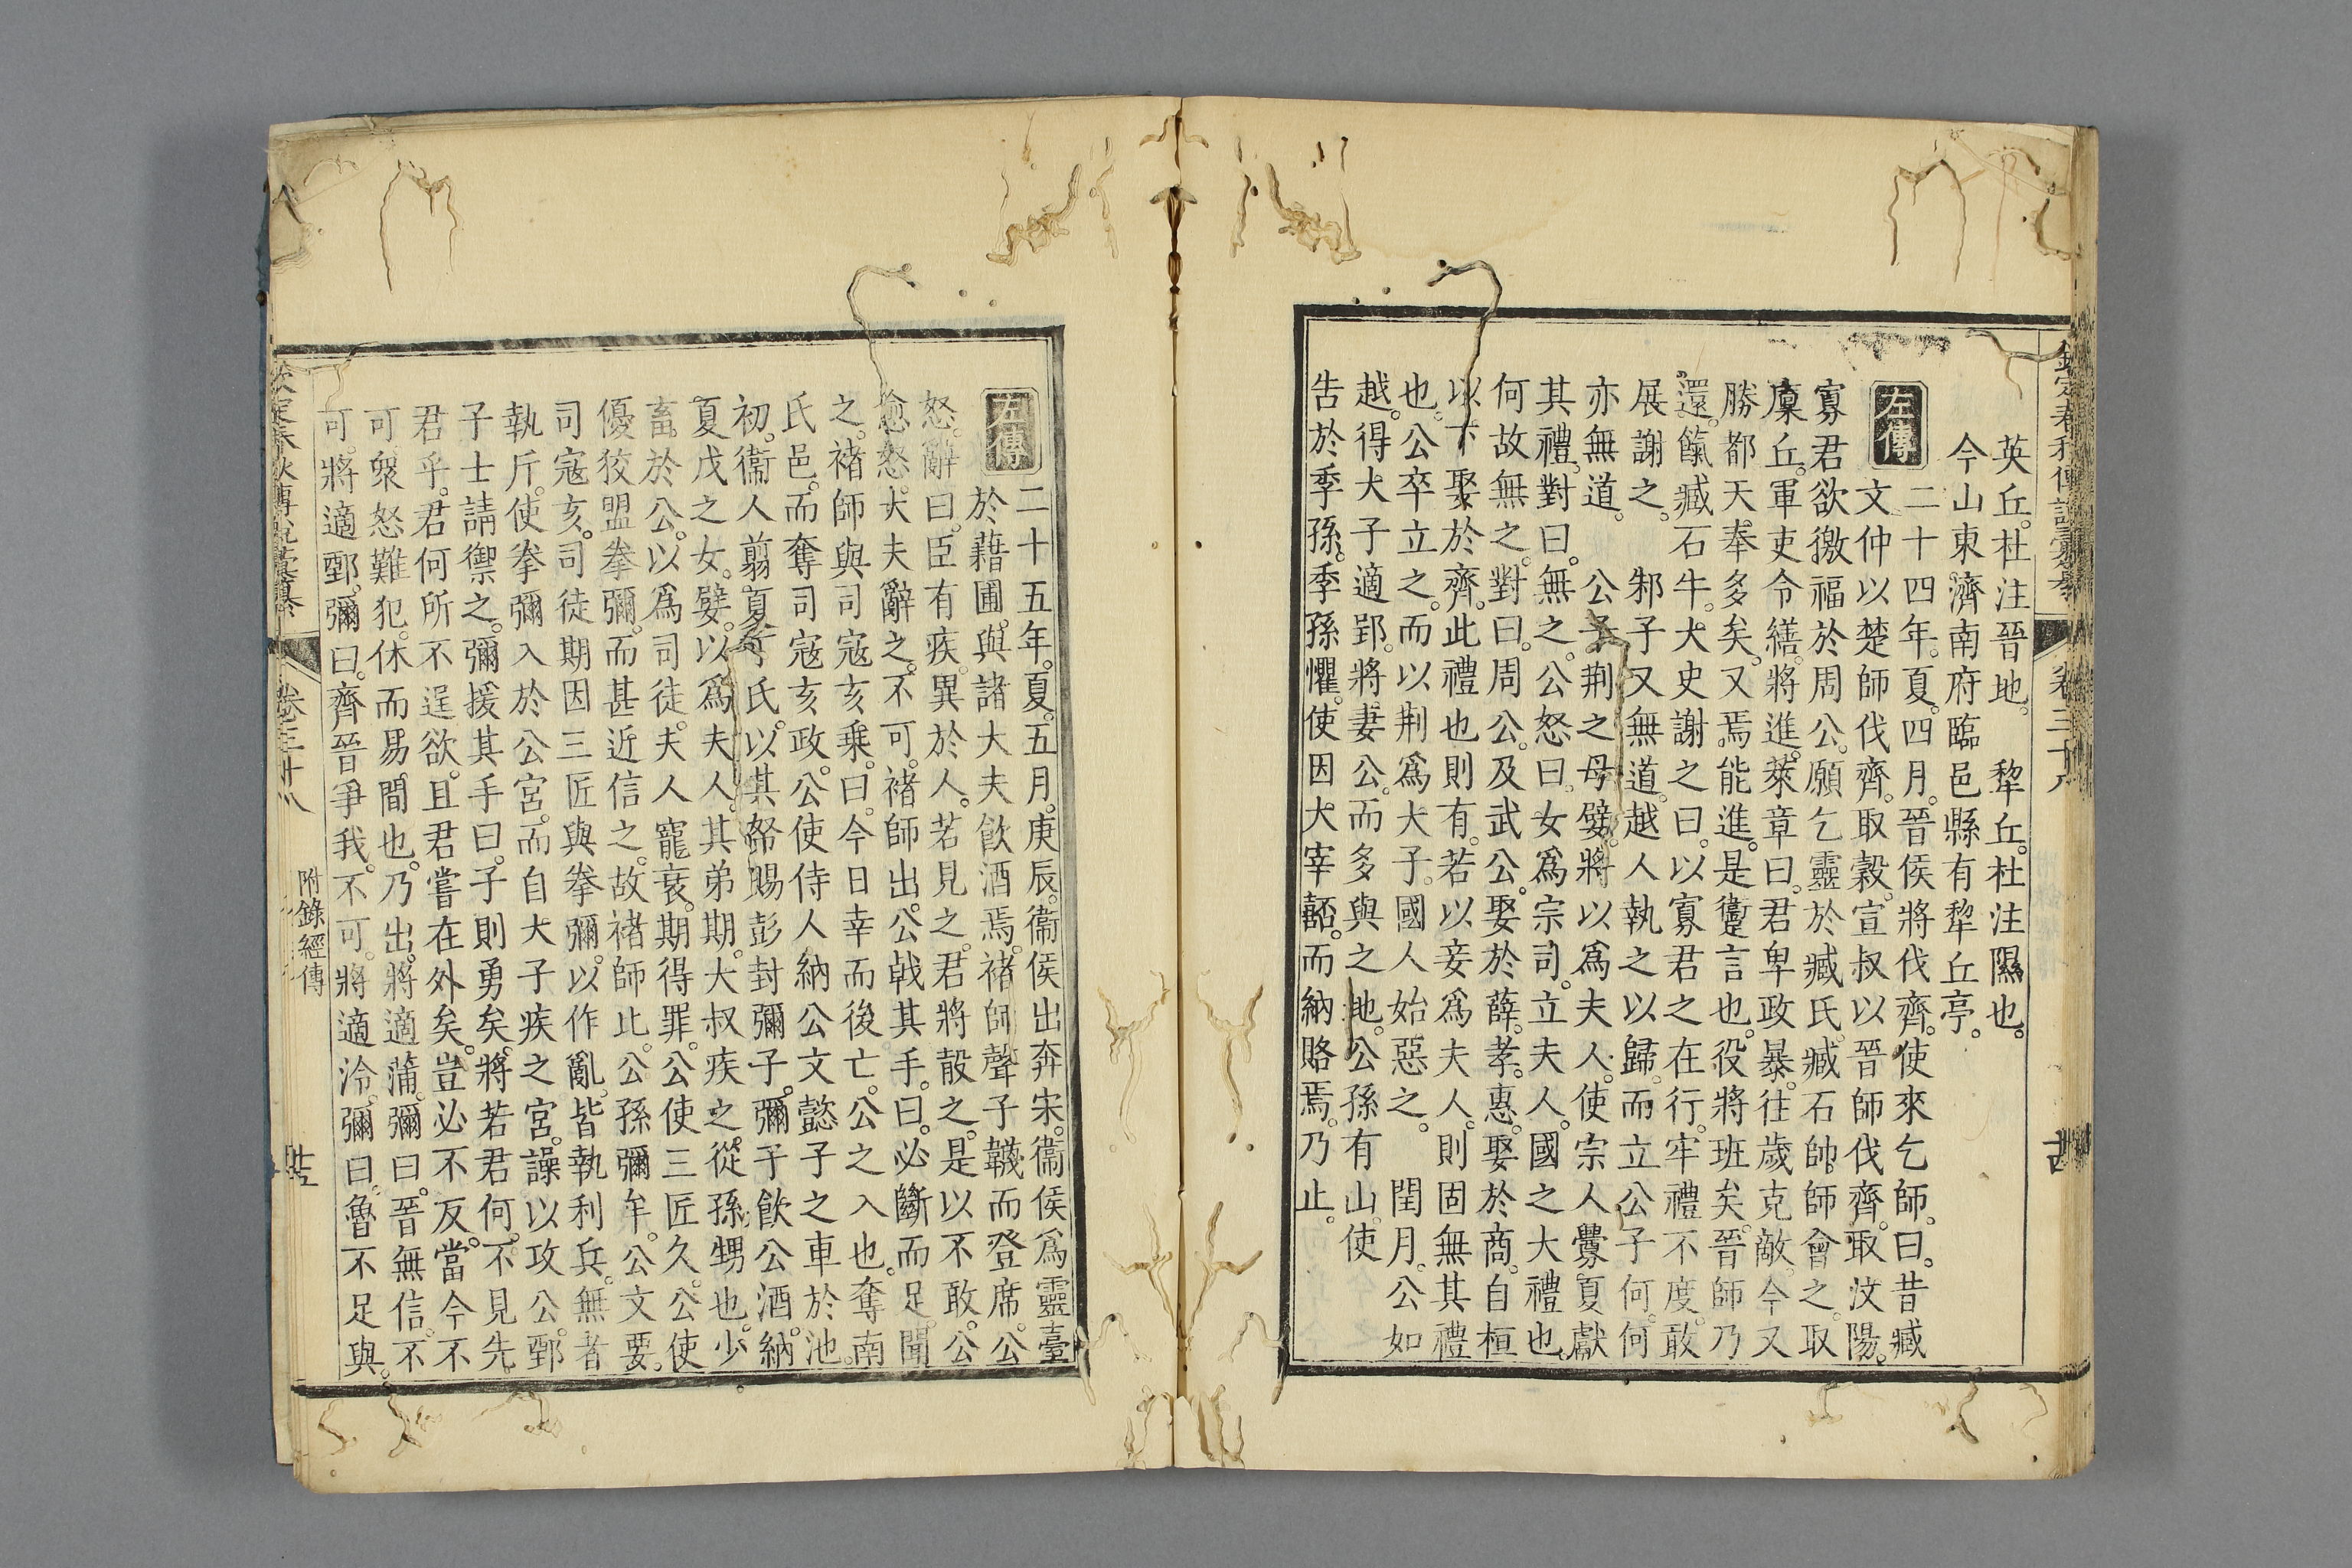 英丘。杜注晉地。　犂丘。杜注隰也。
今山東濟南府臨邑縣有犂丘亭。
左傳
二十四年。夏。四月。晉侯將伐齊。使來乞師。曰。昔臧
文仲以楚師伐齊。取穀。宣叔以晉師伐齊。取汶陽。
寡君欲徼福於周公。願乞靈於臧氏。臧石帥師會之。取
廩丘。軍吏令繕。將進。萊章曰。君卑政暴。往歲克敵。今又
勝都。天奉多矣。又焉能進。是躗言也。役將班矣。晉師乃
還。餼臧石牛。大史謝之曰。以寡君之在行。牢禮不度。敢
展謝之。　邾子又無道。越人執之以歸。而立公子何。何
亦無道。　公子荆之母嬖。將以爲夫人。使宗人釁夏獻
其禮。對曰。無之。公怒曰。女爲宗司。立夫人。國之大禮也。
何故無之。對曰。周公。及武公。娶於薛。孝。惠。娶於商。自桓
以下。娶於齊。此禮也則有。若以妾爲夫人。則固無其禮
也。公卒立之。而以荆爲大子。國人始惡之。　閏月。公如
越。得大子適郢。將妻公。而多與之地。公孫有山。使
告於季孫。季孫懼。使因大宰嚭。而納賂焉。乃止。
卷三十八
左傳
二十五年。夏。五月。庚辰。衞侯出奔宋。衞侯爲靈臺
於藉圃。與諸大夫飮酒焉。褚師聲子韈而登席。公
怒。辭曰。臣有疾。異於人。若見之。君將㱿之。是以不敢。公
愈怒。大夫辭之。不可。褚師出。公戟其手。曰。必斷而足。聞
之。褚師與司寇亥乘。曰。今日幸而後亡。公之入也。奪南
氏邑。而奪司寇亥政。公使侍人納公文懿子之車於池。
初。衞人翦夏丁氏。以其帑賜彭封彌子。彌子飮公酒。納
夏戊之女。嬖。以爲夫人。其弟期。大叔疾之從孫甥也。少
畜。於公。以爲司徒。夫人寵衰。期得罪。公使三匠久。公使
優狡盟拳彌。而甚近信之。故褚師比。公孫彌牟。公文要。
司寇亥。司徒期因三匠與拳彌。以作亂。皆執利兵。無者
執斤。使拳彌入於公宮。而自大子疾之宮。譟以攻公。鄄
子士請禦之。彌援其手曰。子則勇矣。將若君何。不見先
君乎。君何所不逞欲。且君嘗在外矣。豈必不反。當今不
可。衆怒難犯。休而易間也。乃出。將適蒲。彌曰。晉無信。不
可。將適鄄。彌曰。齊晉爭我。不可。將適泠。彌曰。魯不足與。
卷三十八　附錄經傳